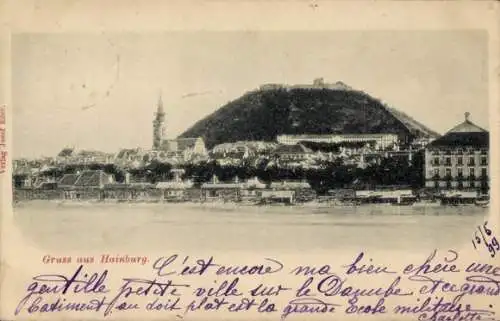 Verlag Josef
Gruss aus Hainburg.
15/5 99
C'est encore ma bien chère une
gentille petite ville sur le Danube et ce grand
batiment au toit plat est la grande Ecole militaire